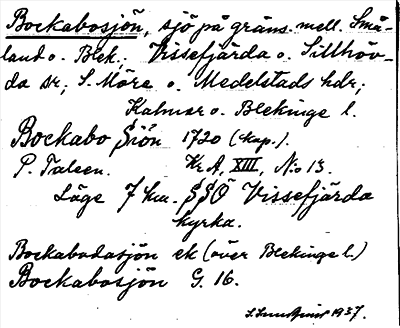 Bockabosjön, sjö på gräns. mell. Små-
land o. Blek., Vissefjärda o. Sillhöv-
da sr, S. Möre o. Medelstads hdr,
Kalmar o. Blekinge l.
Bockabo Siön 1720 (kap.).
P. Taleen. Kr A, XIII, N:o 13.
Läge 7 km. SSÖ Vissefjärda
kyrka.
Bockabodasjön ek (över Blekinge l.)
Bockabosjön G. 16.
1937.